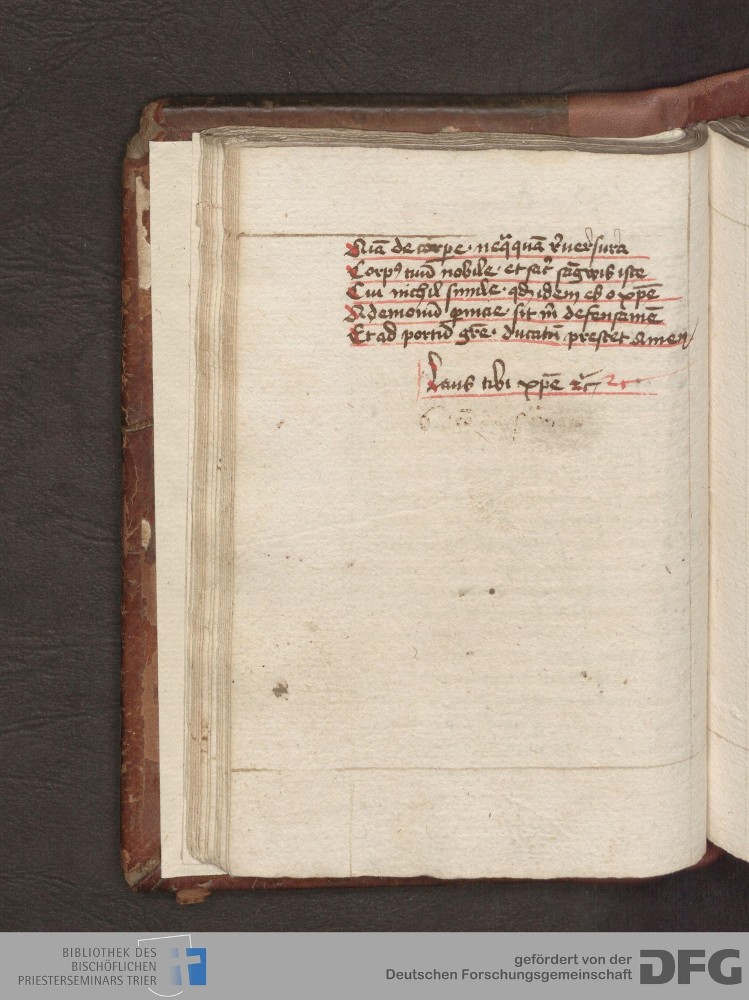 Aīa de corpe · neq̄quā r̄uersura
Corpꝰ tuū nobile · et sac̄ sāgwis iste
Cui nichil simile · qd̄ idem es o xp̄e
A demoniū sit m̄ defensamē
Et ad portū gr̄e · ducatū prestet amen
Laus tibi xp̄e ⁊c̄ ⁊c
BIBLIOTHEK DES
BISCHÖFLICHEN
PRIESTERSEMINARS TRIER
gefördert von der
Deutschen Forschungsgemeinschaft
DFG